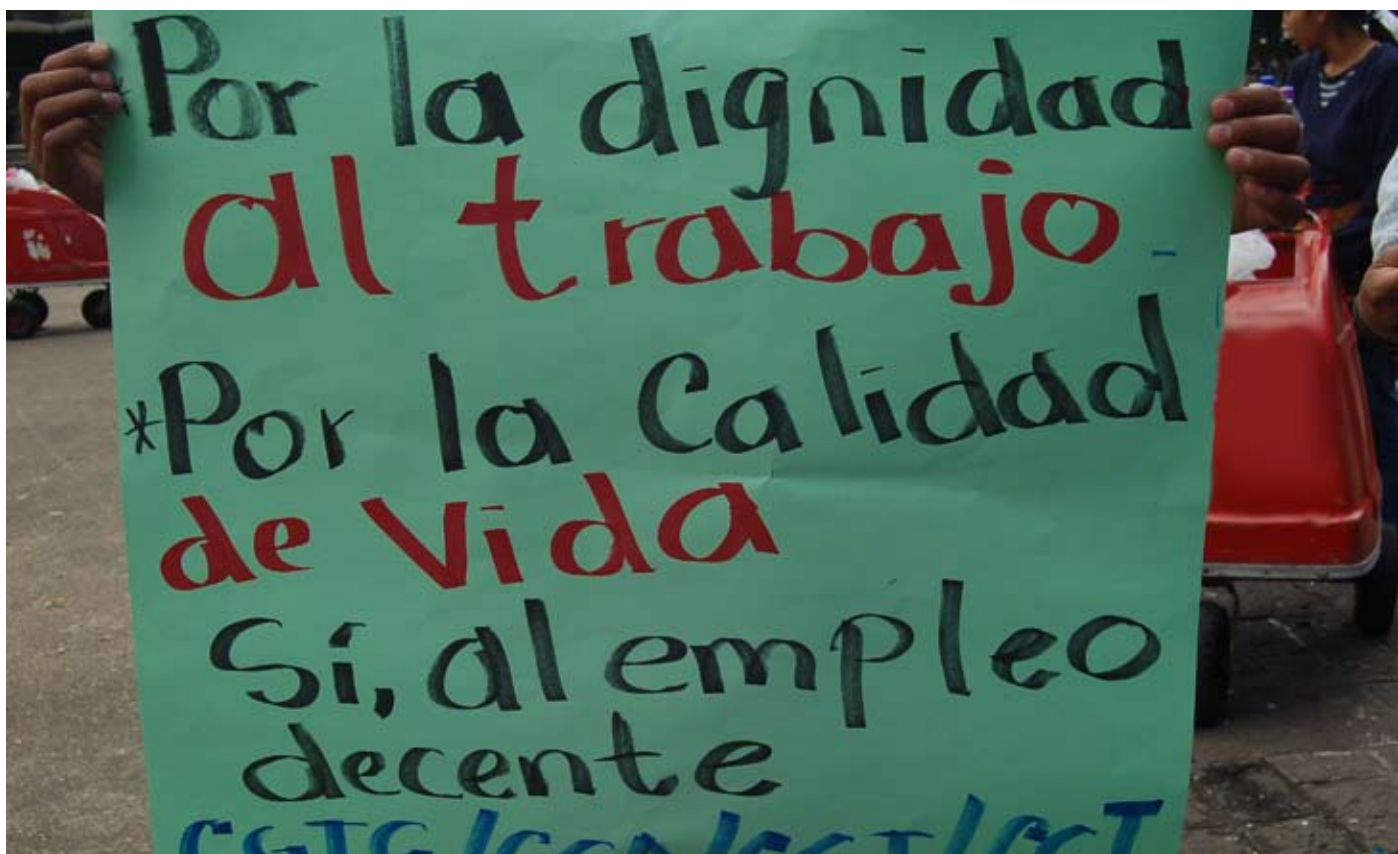 *Por la dignidad
al trabajo
*Por la Calidad
de Vida
Sí, al empleo
decente